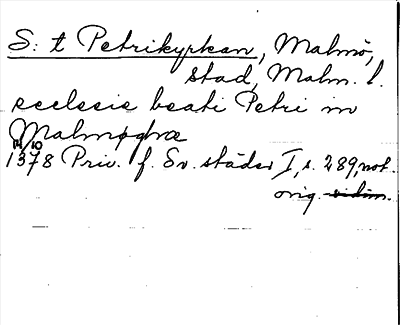 S:t Petrikyrkan, Malmö,
stad, Malm. l.
ecclesie beati Petri in
Malmøghæ
14/10
1378 Priv. f. Sv. städer I, s. 289, not.
orig. vidim.